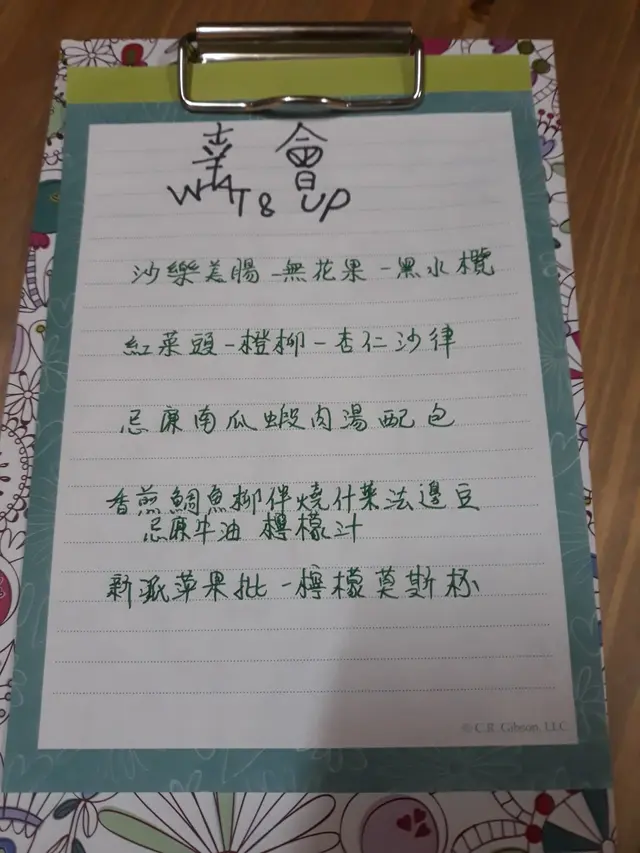 喜會
WHAT8 UP
沙樂美腸-無花果-黑水欖
紅菜頭-橙柳-杏仁沙律
忌廉南瓜蝦肉湯配包
香煎鯛魚柳伴燒什菜法邊豆
忌廉牛油 檸檬汁
新派苹果批-檸檬莫斯杯
© C.R. Gibson, LLC